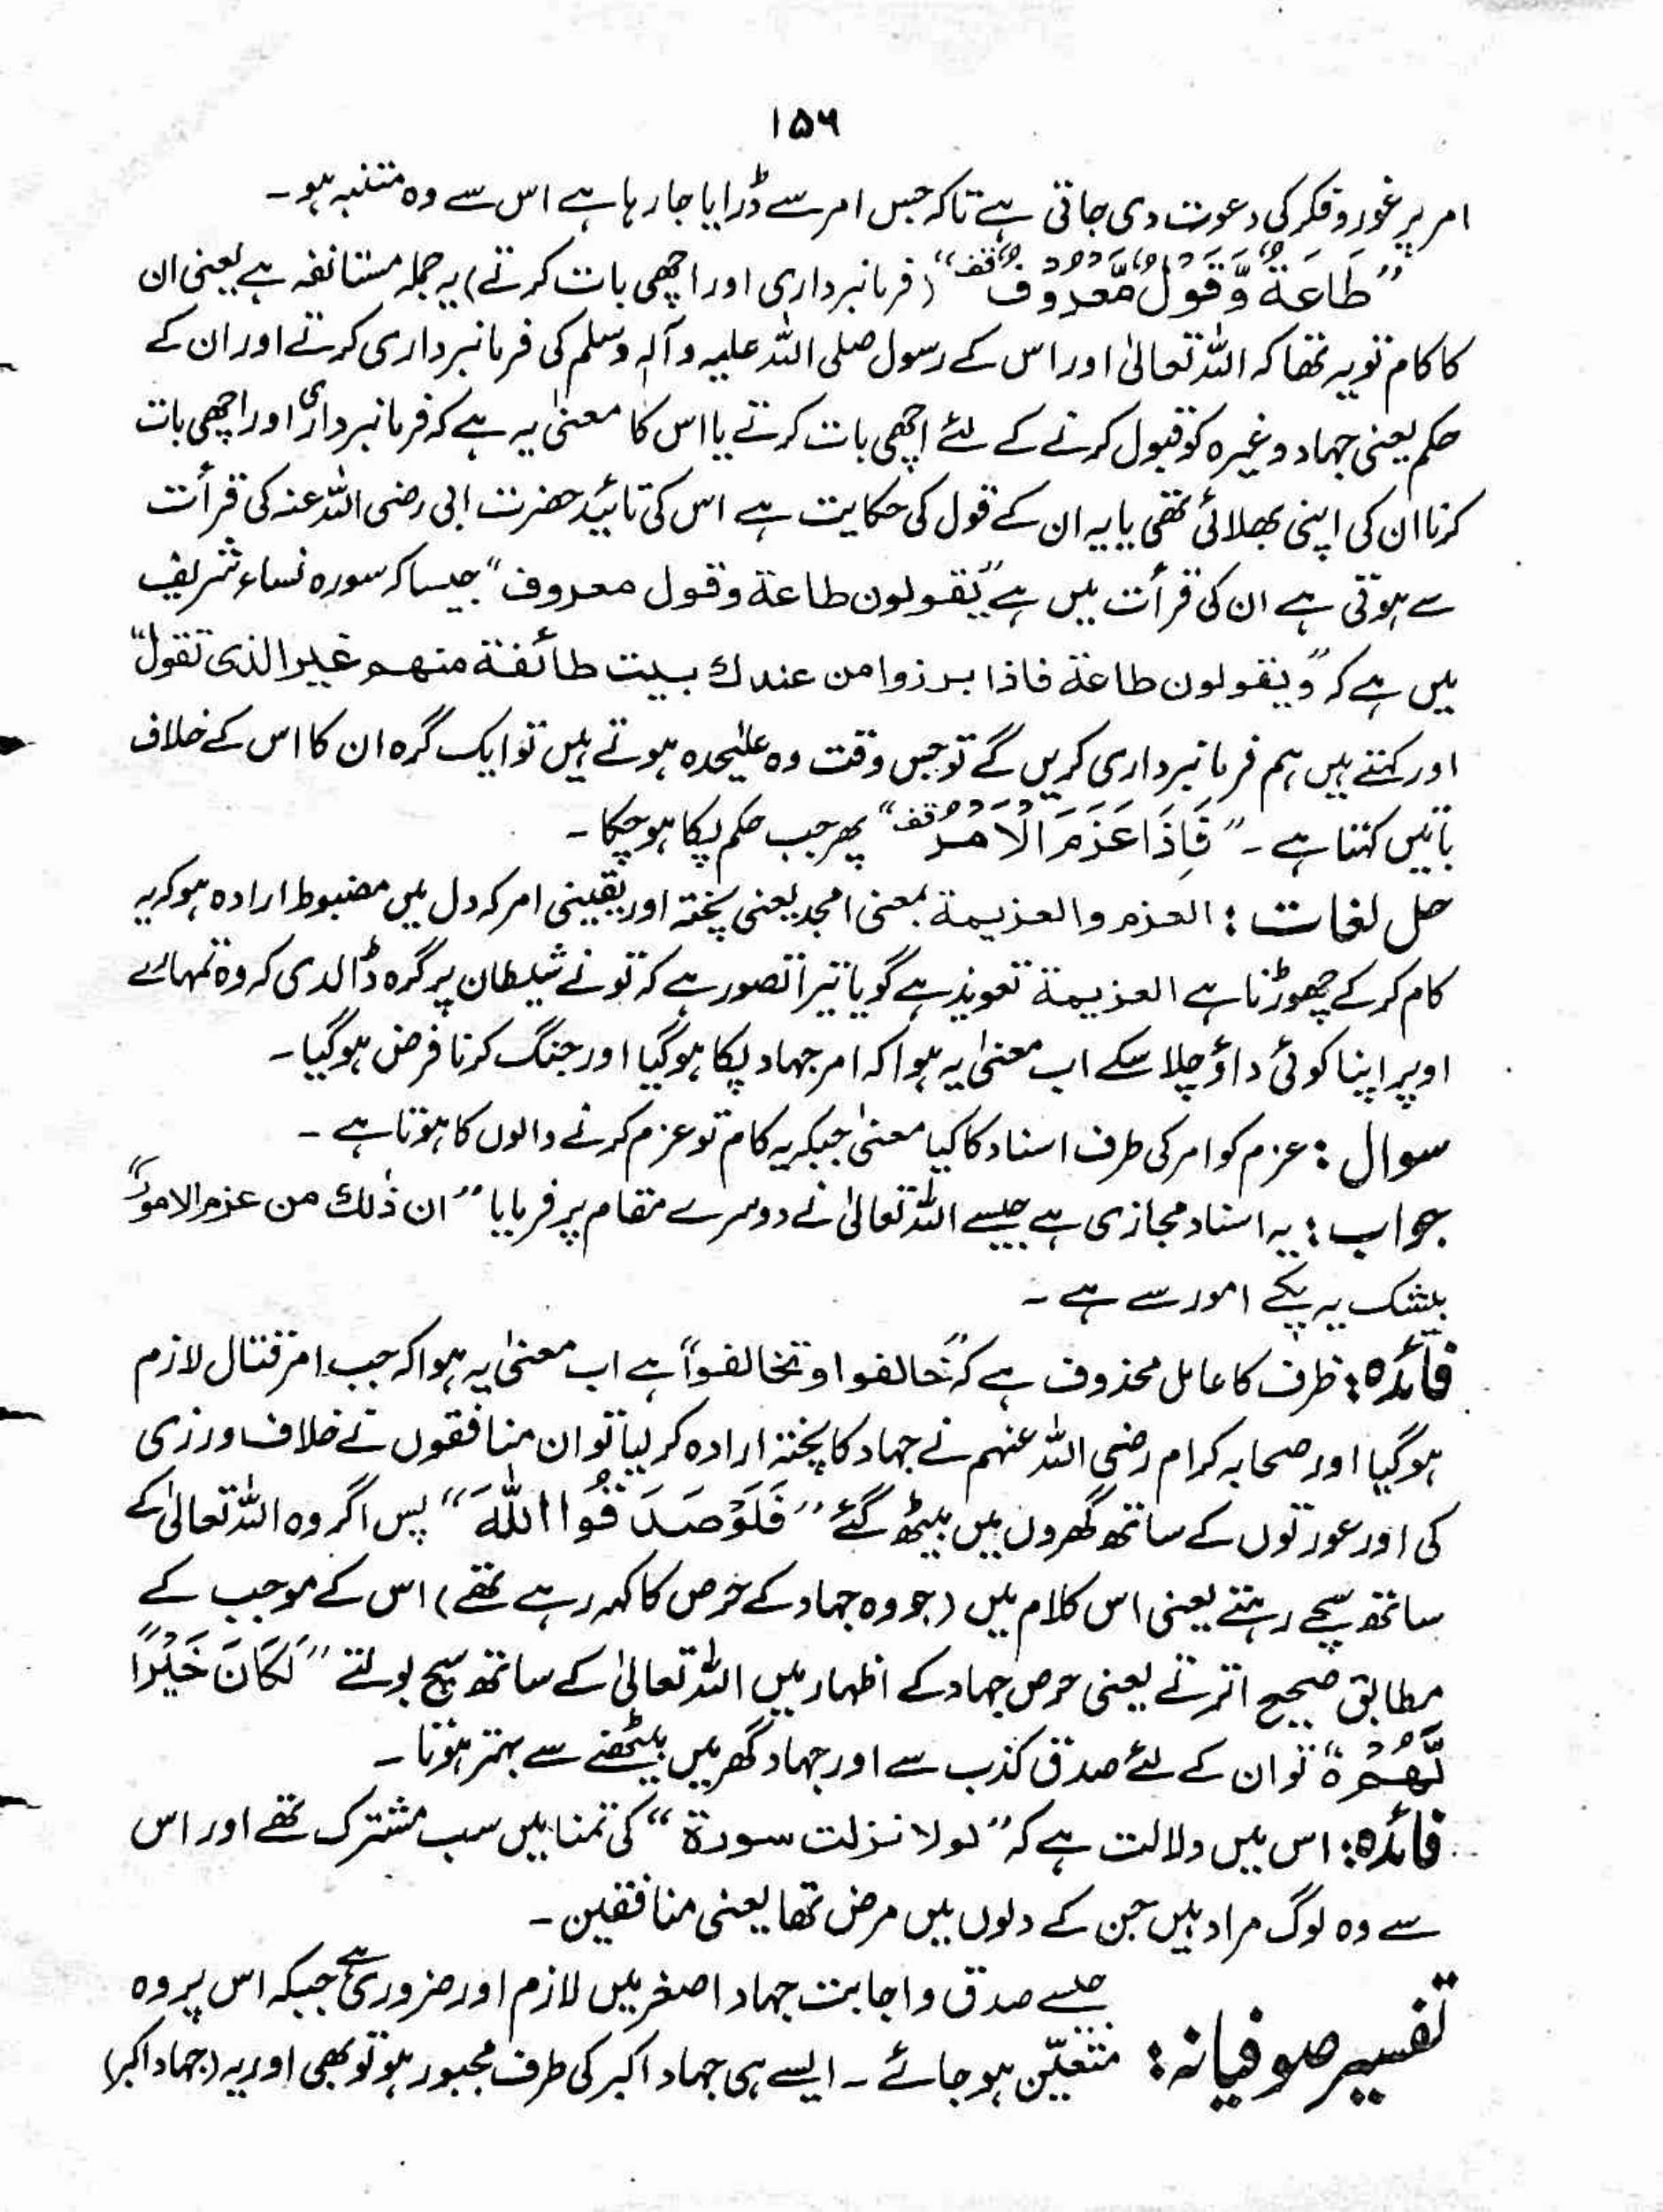 ۱۵۶
امر پر غور و فکر کی دعوت دی جاتی ہے تاکہ جس امر سے ڈرایا جا رہا ہے اس سے وہ متنبہ ہو۔
”طَاعَةٌ وَّقَوْلٌ مَّعْرُوْفٌ قف“ (فرمانبرداری اور اچھی بات کرتے) یہ جملہ مستانفہ ہے یعنی ان
کا کام تو یہ تھا کہ اللہ تعالیٰ اور اس کے رسول صلی اللہ علیہ وآلہٖ وسلم کی فرمانبرداری کرتے اور ان کے
حکم یعنی جہاد وغیرہ کو قبول کرنے کے لئے اچھی بات کرتے یا اس کا معنیٰ یہ ہے کہ فرمانبرداری اور اچھی بات
کرنا ان کی اپنی بھلائی تھی یا یہ ان کے قول کی حکایت ہے اس کی تائید حضرت ابی رضی اللہ عنہ کی قرأت
سے ہوتی ہے ان کی قرأت میں ہے ”یقولون طاعة وقول معروف“ جیسا کہ سورہ نساء شریف
میں ہے کہ ”ویقولون طاعة فاذا برزوا من عندك بیت طائفة منهم غیر الذی تقول“
اور کہتے ہیں ہم فرمانبرداری کریں گے تو جس وقت وہ علیٰحدہ ہوتے ہیں تو ایک گرہ ان کا اس کے خلاف
باتیں کہتا ہے۔ ”فَاِذَا عَزَمَ الْاَمْرُ قف“ پھر جب حکم پکا ہو چکا۔
حل لغات : العزم والعزیمة بمعنی امجد یعنی پختہ اور یقینی امر کہ دل میں مضبوط ارادہ ہو کہ یہ
کام کر کے چھوڑنا ہے العزیمة تعویذ ہے گویا تیرا تصور ہے کہ تو نے شیطان پر گرہ ڈالدی کہ وہ تمہارے
اوپر اپنا کوئی داؤ چلا سکے اب معنیٰ یہ ہوا کہ امر جہاد پکا ہوگیا اور جنگ کرنا فرض ہوگیا۔
سوال : عزم کو امر کی طرف اسناد کا کیا معنیٰ جبکہ یہ کام تو عزم کرنے والوں کا ہوتا ہے۔
جواب : یہ اسناد مجازی ہے جیسے اللہ تعالیٰ نے دوسرے مقام پر فرمایا ”ان ذٰلك من عزم الامور“
بیشک یہ پکے امور سے ہے۔
فائدہ : ظرف کا عامل محذوف ہے کہ ”خالفوا وتخالفوا“ ہے اب معنیٰ یہ ہوا کہ جب امر قتال لازم
ہوگیا اور صحابہ کرام رضی اللہ عنہم نے جہاد کا پختہ ارادہ کر لیا تو ان منافقوں نے خلاف ورزی
کی اور عورتوں کے ساتھ گھروں میں بیٹھ گئے ”فَلَوْ صَدَقُوا اللّٰهَ“ پس اگر وہ اللہ تعالیٰ کے
ساتھ سچے رہتے یعنی اس کلام میں (جو وہ جہاد کے حرص کا کہہ رہے تھے) اس کے موجب کے
مطابق صحیح اترتے یعنی حرص جہاد کے اظہار میں اللہ تعالیٰ کے ساتھ سچ بولتے ”لَكَانَ خَيْرًا
لَّهُمْ ۃ“ تو ان کے لئے صدق کذب سے اور جہاد گھر میں بیٹھنے سے بہتر ہوتا۔
فائدہ : اس میں دلالت ہے کہ ”لولا نزلت سورة“ کی تمنا میں سب مشترک تھے اور اس
سے وہ لوگ مراد ہیں جن کے دلوں میں مرض تھا یعنی منافقین۔
تفسیر صوفیانہ : جیسے صدق و اجابت جہاد اصغر میں لازم اور ضروری ہے جبکہ اس پر وہ
متعیّن ہو جائے۔ ایسے ہی جہاد اکبر کی طرف مجبور ہو تو بھی اور یہ (جہاد اکبر)